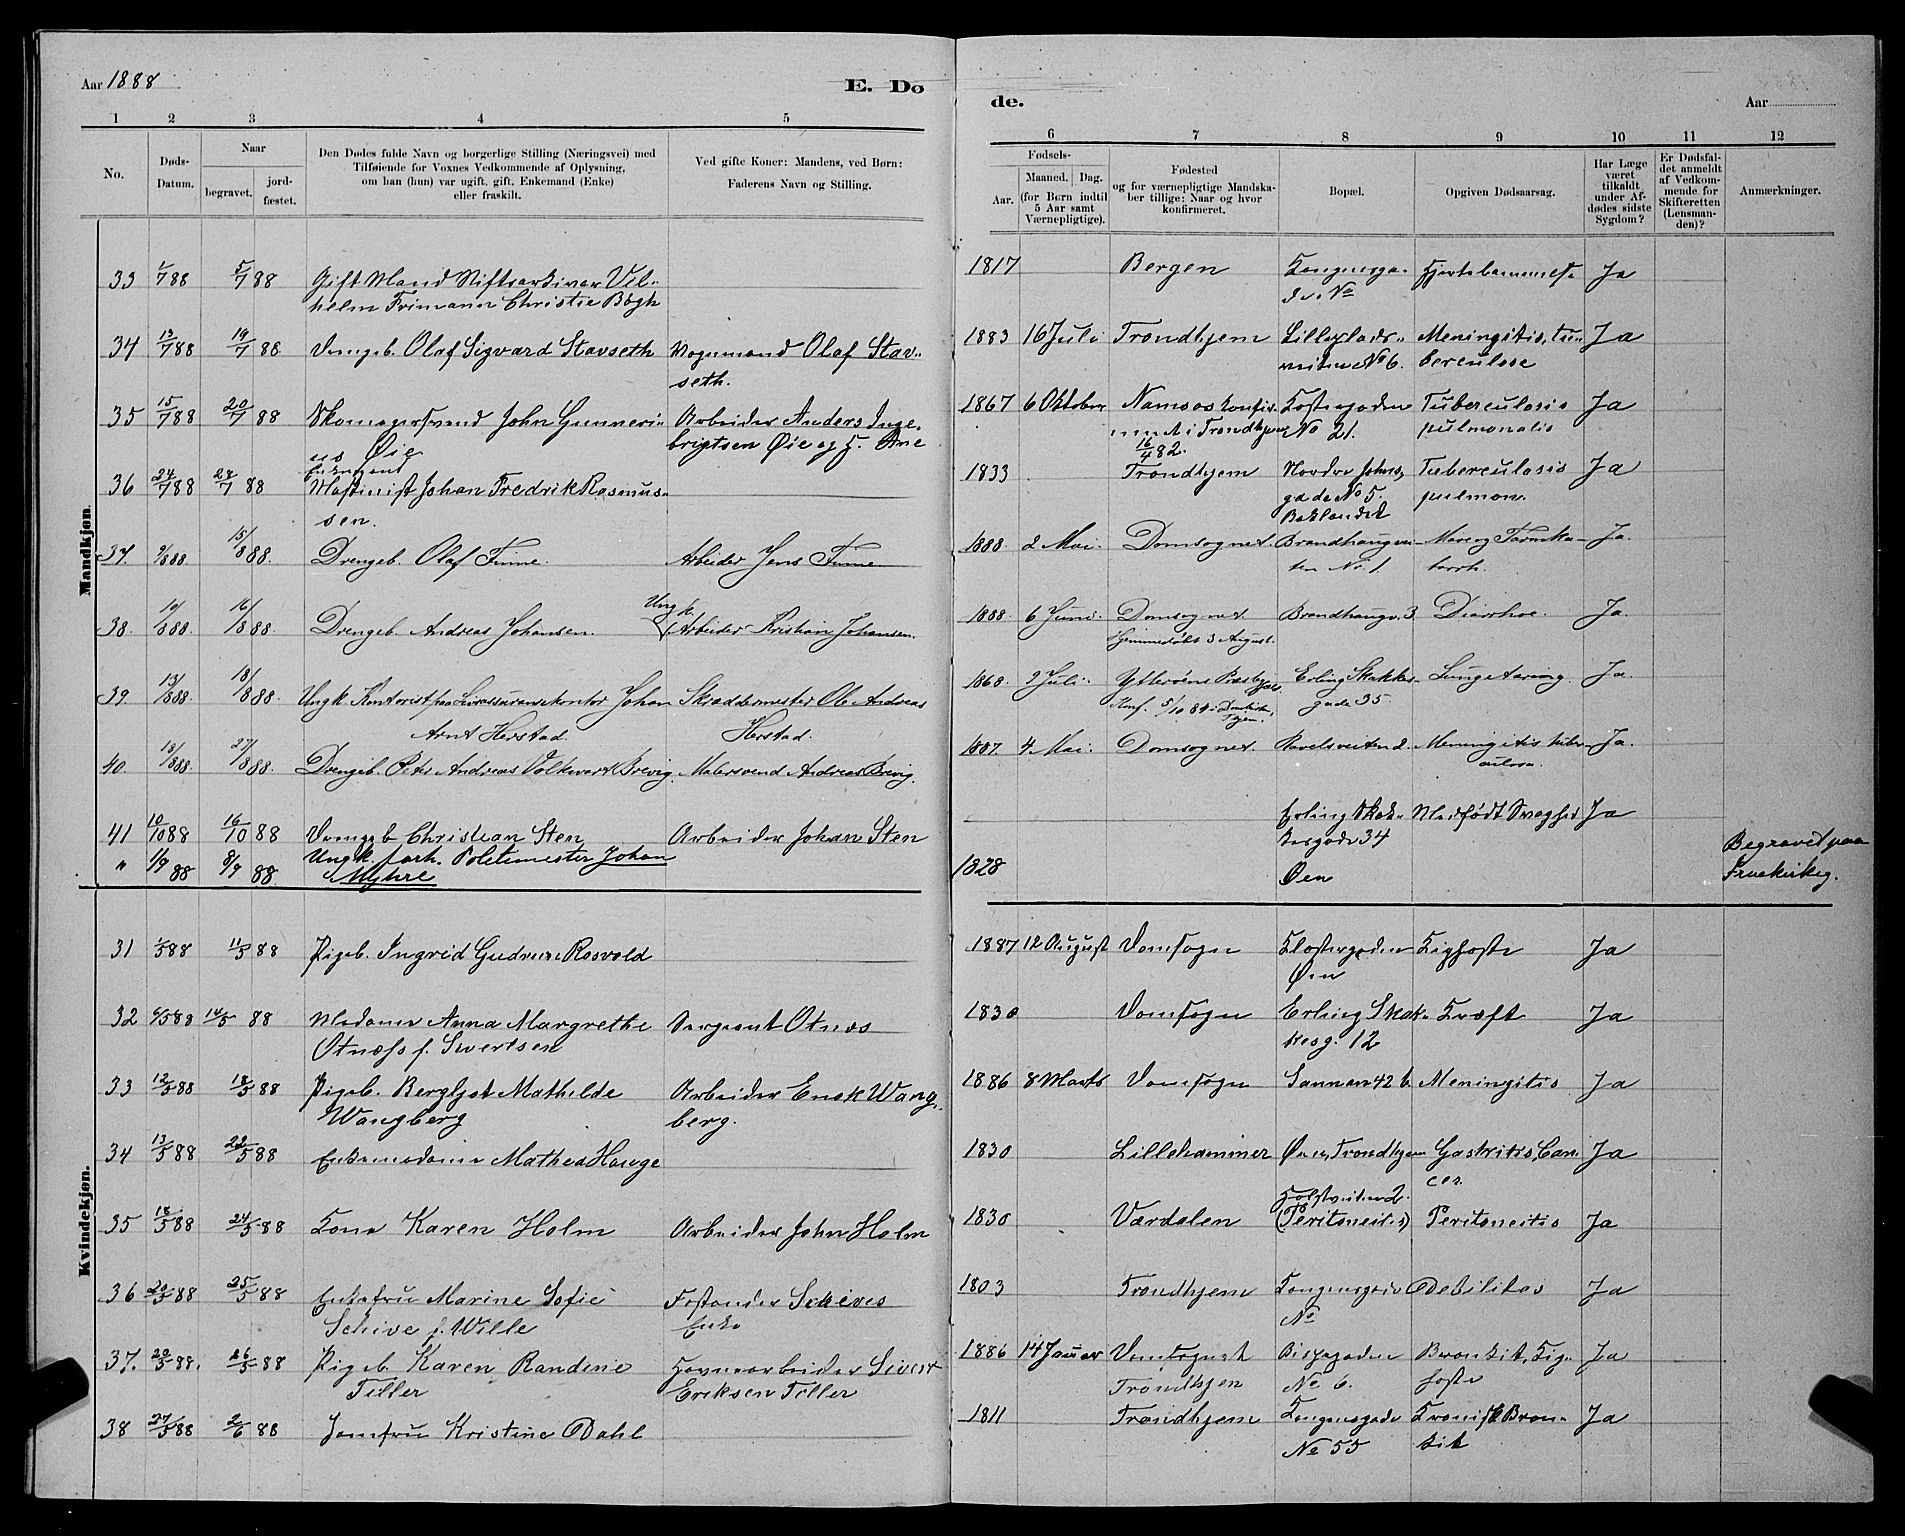 Aar 1888
E. Dø
de.
Aar
1 2 3 4 5 6 7 8 9 10 11 12
No.
Døds-Datum.
Naar
begravet.
jord-fæstet.
Den Dødes fulde Navn og borgerlige Stilling (Næringsvei) med
Tilføiende for Voxnes Vedkommende af Oplysning,
om han (hun) var ugift, gift, Enkemand (Enke)
eller fraskilt.
Ved gifte Koner: Mandens, ved Børn:
Faderens Navn og Stilling.
Fødsels-
Aar.
Maaned. Dag.
(for Børn indtil
5 Aar samt
Værnepligtige).
Fødested
og for værnepligtige Mandska-
ber tillige: Naar og hvor
konfirmeret.
Bopæl.
Opgiven Dødsaarsag.
Har Læge
været
tilkaldt
under Af-
dødes sidste
Sygdom?
Er Dødsfal-
det anmeldt
af Vedkom-
mende for
Skifteretten
(Lensman-
den)?
Anmærkninger.
Mandkjøn.
33 1/7 88 5/7 88 Gift Mand Stiftsarkivar Vil-
helm Frimann Christie Bøgh
1817 Bergen Kongensga-
de No Hjertelammelse Ja
34 13/7 88 19/7 88 Drengeb. Olaf Sigvard Stavseth Vognmand Olaf Stav-
seth.
1883 16 Juli Trondhjem No 6. Meningitis, tu-
berculose Ja
35 15/7 88 20/7 88 Skomagersvend John Gunneri-
us Øie Arbeider Anders Inge-
brigtsen Øie og
1867 6 Oktober Namsos Konfir-
i Trondhjem
16/4 82.
No 21. Tuberculosis
pulmonalis Ja
36 24/7 88 28/7 88 Enkemand
Maskinist Johan Fredrik Rasmus-
sen.
1833 Trondhjem Nordre
gade No 5.
Baklandet Tuberculosis
pulmon. Ja
37. 9/8 88 15/8 88. Drengeb. Olaf Finne. Arbeider Jens Finne
1888 2 Mai. Domsognet. Brandhaugvei-
ten No. 1 Mave og Tarmka-
tarrh. Ja.
38. 10/8 88. 16/8 88. Drengeb. Andreas Johansen. Ungk.
Arbeider Kristian Johansen.
1888. 6 Juni. Domsognet.
Hjemmedøbt 3 August. Brandhaugv. 3 Diarrhoe. Ja.
39. 13/8 88. 18/8 88. Ungk. Kontorist paa Livassurancekontor Johan
Arnt Herstad. Skræddermester Ole Andreas
Herstad.
1868. 9 Juli. Ytterøens Præstegj.
Konf. 5/10 84 i Domkirken,
Thjem. Erling Skakkes-
gade 35. Lungetæring. Ja.
40. 18/8 88. 27/8 88. Drengeb. Peter Andreas Volkvart Brevig. Malersvend Andreas Brevig.
1887. 4 Mai. Domsognet. Ravelsveiten 2. Meningitis tuber-
culosa. Ja.
41 10/10 88 16/10 88 Drengeb. Christian Sten Arbeider Johan Sten
Erling Skak-
kesgade 34 Medfødt Svaghed Ja
" 1/9 88 8/9 88 Ungk. forh. Politimester Johan
Myhre
1828 Øen Begravet paa
Fruekirkeg.
Kvindekjøn.
31 1/5 88 11/5 88 Pigeb. Ingrid Gudrun Rosvold
1887 12 August Domsogn Klostergaden
Øen Kighoste Ja
32 6/5 88 14/5 88 Madame Anna Margrethe
Otness f. Sivertsen Sergeant Otnes
1830 Domsogn Erling Skak-
kesg. 12 Kræft Ja
33 12/5 88 18/5 88 Pigeb. Bergljot Mathilde
Wangberg Arbeider Enok Wang-
berg.
1886 8 Marts Domsogn Sannan 42 b Meningitis Ja
34 13/5 88 22/5 88 Enkemadame Mathea Hauge
1830 Lillehammer Øen, Trondhjem Gastritis, Can-
cer. Ja
35 18/5 88 24/5 88 Kone Karen Holm Arbeider John Holm
1830 Værdalen Holstveiten 2.
(Peritoneitis) Peritoneitis Ja
36 20/5 88 25/5 88 Enkefru Marine Sofie
Schive f. Wille Fostander Schives
Enke
1803 Trondhjem Kongensgade
No Debilitas Ja
37. 20/5 88. 26/5 88 Pigeb. Karen Randine
Tiller Havnearbeider Sivert
Eriksen Tiller
1886 14 Januar Domsognet
Trondhjem Bispegaden
No 6. Bronkit, Kig-
hoste Ja
38 27/5 88 2/6 88 Jomfru Kristine Dahl
1811 Trondhjem Kongensgade
No 55 Kronisk Bron-
kit Ja